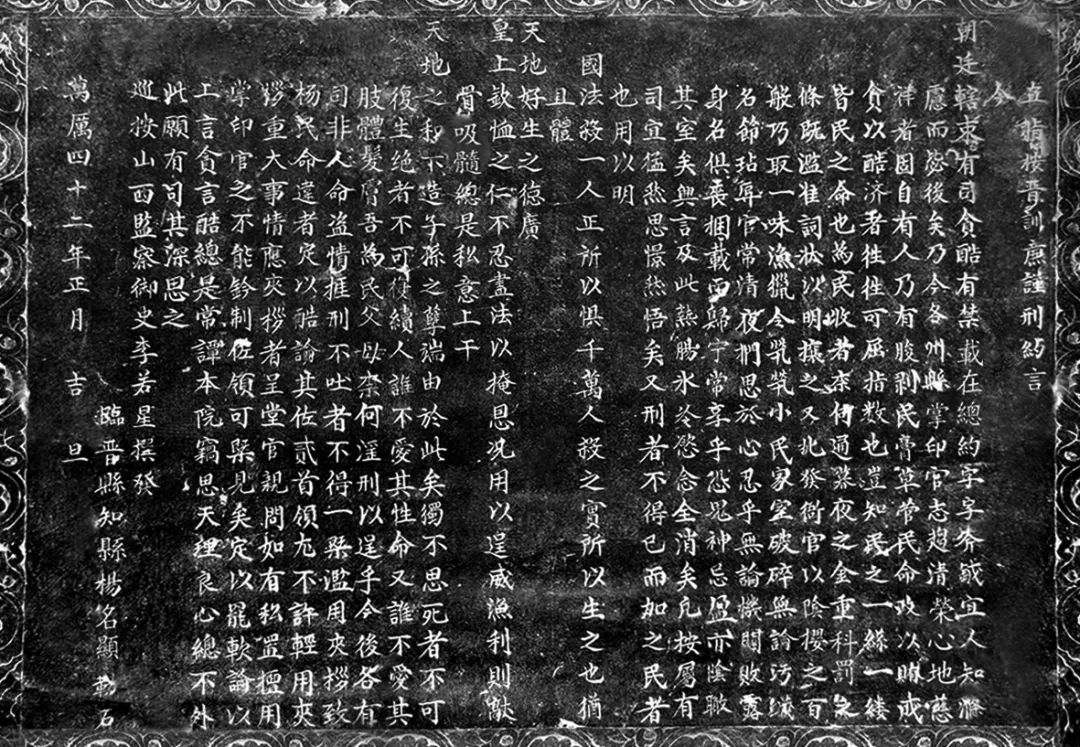 直指按晋訓廉謹刑約言
今
朝廷轄束有司貪酷有禁載在總約字字斧鉞宜人知滌
慮而毖後矣乃今各州縣掌印官志趨清榮心地慈
祥者固自有人乃有朘剥民膏草菅民命政以賄成
貪以酷济者往往可屈指数也豈知民之一絲一縷
皆民之命也為民牧者柰何通暮夜之金重科罰之
條既濫准詞状以明攘之又兆發衙官以陰攫之百
般巧取一味漁獵令煢煢小民家室破碎無論污蠛
名節玷辱官常清夜捫思於心忍乎無論聞敗露
身名俱喪捆載而歸宁常享乎恐鬼神忌盈亦陰瞰
其室矣興言及此熱腸氷冷慾念全消矣凡按屬有
司宜猛然思憬然悟矣又刑者不得已而加之民者
也用以明
國法殺一人正所以惧千萬人殺之實所以生之也猶
且體
天地好生之德廣
皇上欽恤之仁不忍盡法以掩恩况用以逞威漁利則敲
骨吸髓總是私意上干
天地之和下造子孫之孽端由於此矣獨不思死者不可
復生绝者不可復續人誰不愛其性命又誰不愛其
肢體髮膚吾為民父母柰何淫刑以逞乎今後各有
司非人命盗情推刑不吐者不得一槩濫用夾拶致
民命違者定以酷論其佐貳首領尤不許輕用夾
拶重大事情應夾拶者呈堂官親問如有私置擅用
掌印官之不能鈐制佐領可槩見矣定以罷軟論以
上言貪言酷總是常譚本院竊思天理良心總不外
此願有司其深思之
巡按山西監察御史李若星撰發
臨晋縣知縣楊名顯勒石
萬曆四十二年正月吉旦